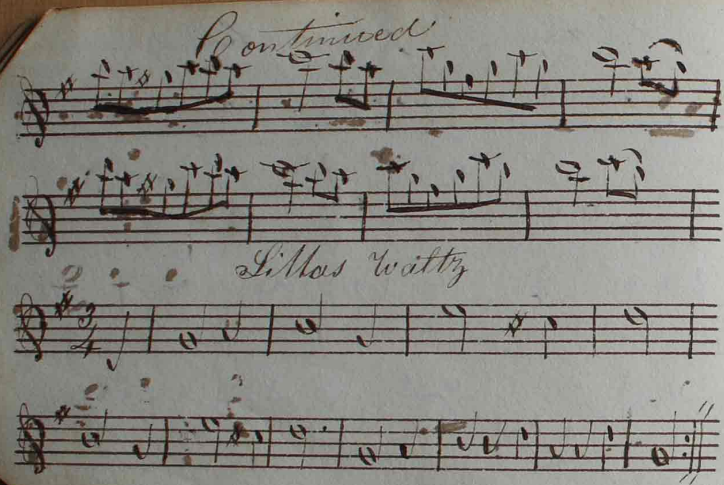 Continued
Lillas Waltz
3
4